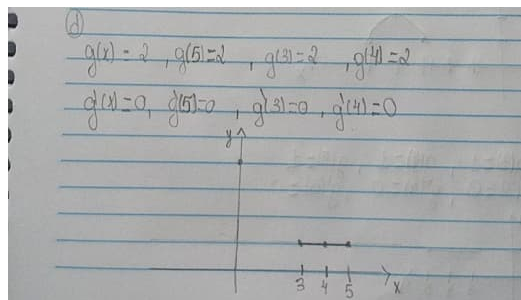 d
g(x) = 2 , g(5)=2 , g(3)=2 , g(4)=2
g'(x)=0, g'(5)=0 , g'(3)=0 , g'(4)=0
y
3 4 5 x